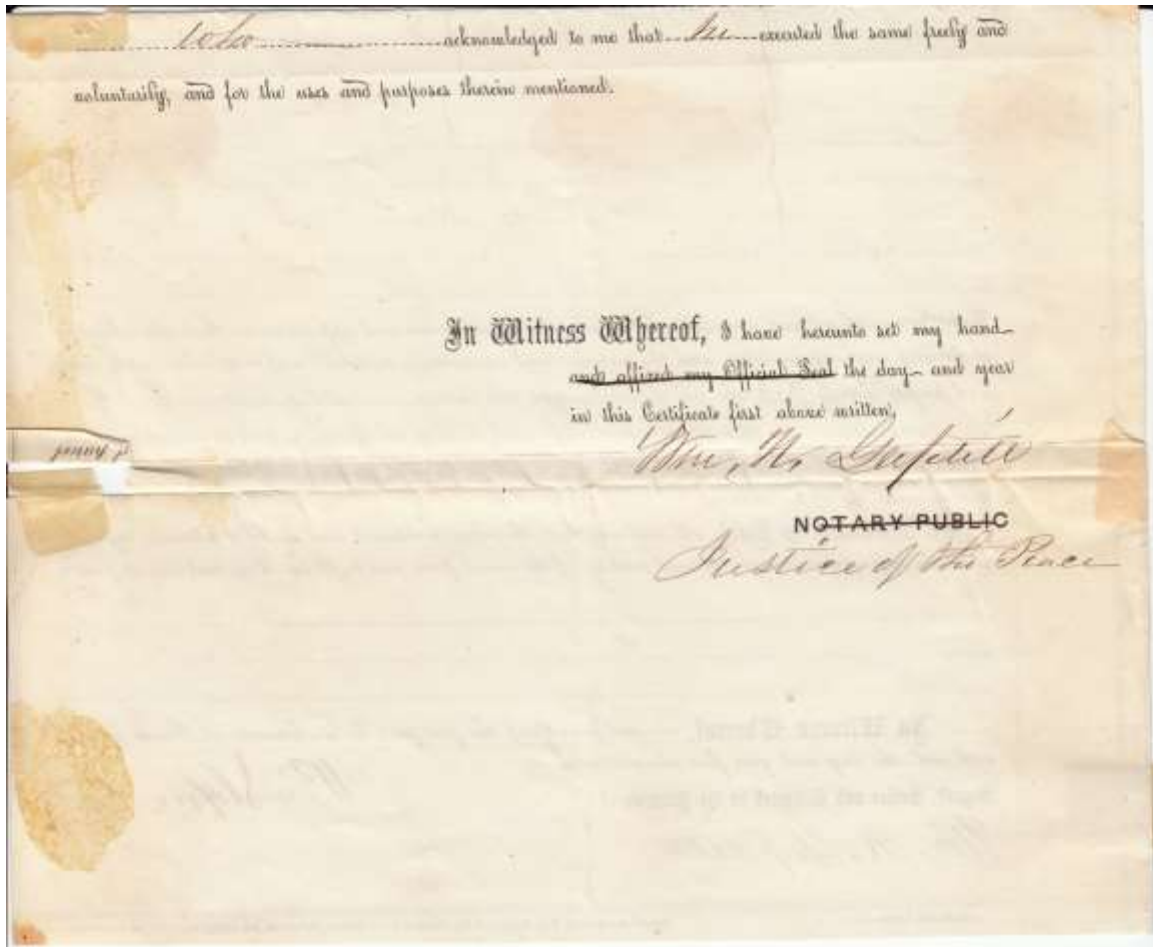 who acknowledged to me that he executed the same freely and
voluntarily, and for the uses and purposes therein mentioned.
In Witness Whereof, I have hereunto set my hand
and affixed my Official Seal the day and year
in this Certificate first above written,
Wm. H.
NOTARY PUBLIC
Justice of the Peace